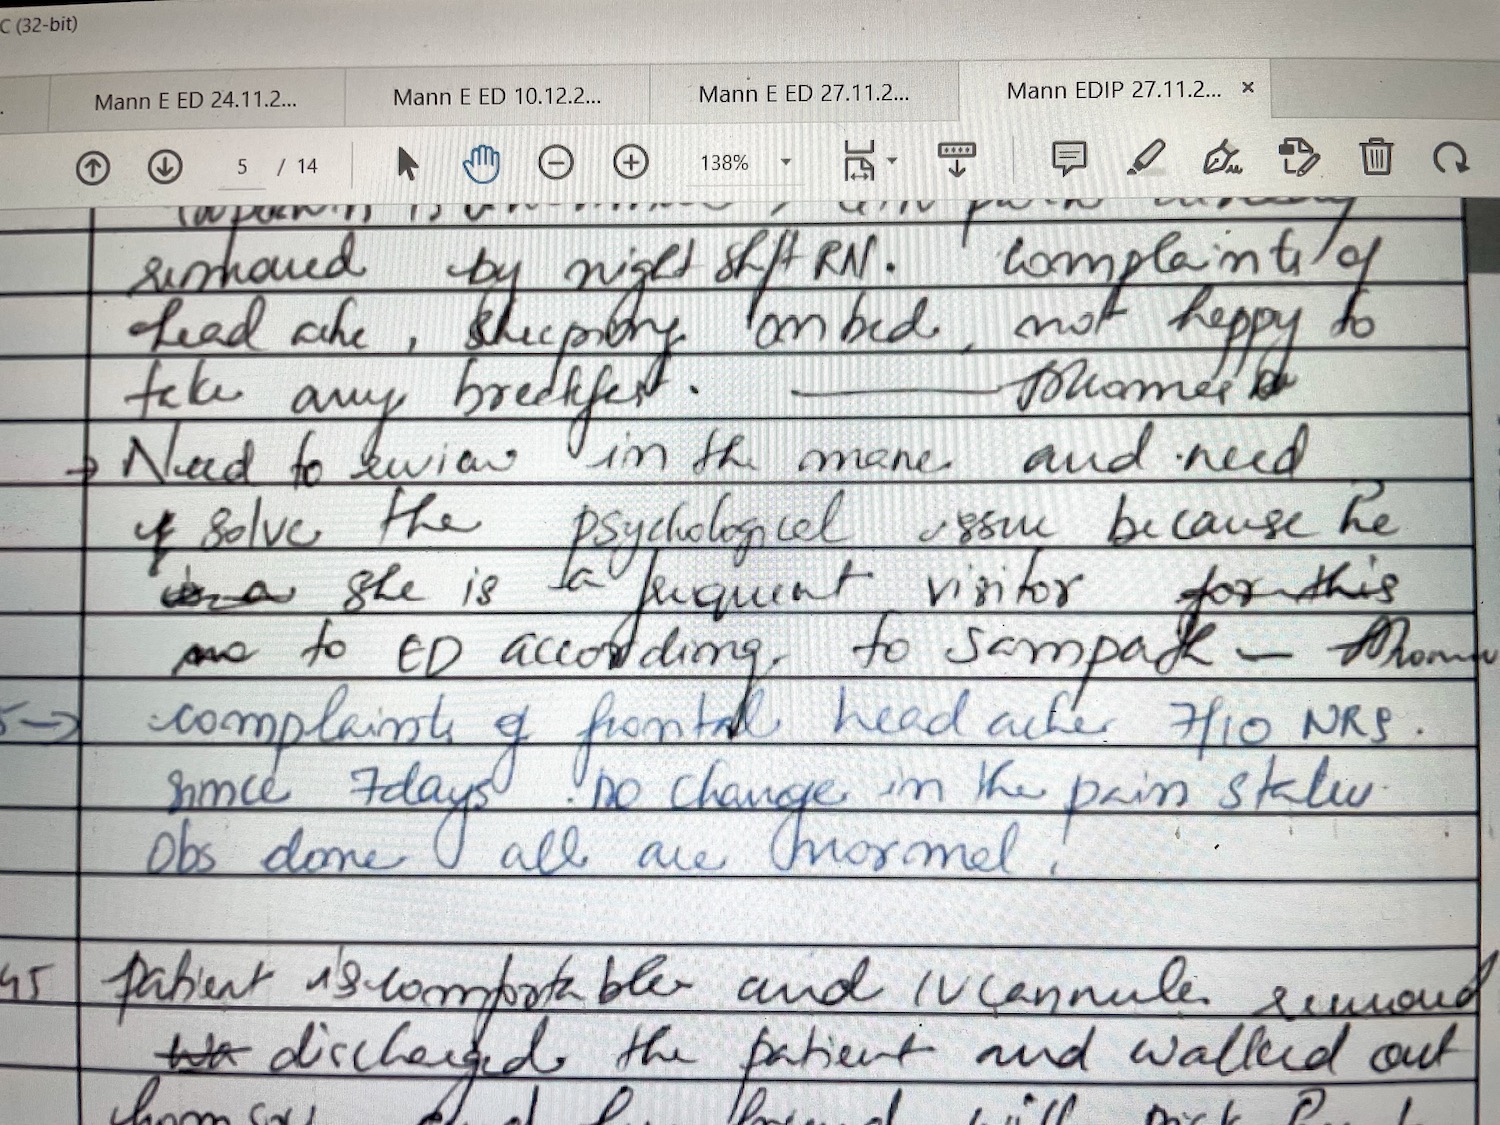 C (32-bit)
Mann E ED 24.11.2...
Mann E ED 10.12.2...
Mann E ED 27.11.2...
Mann EDIP 27.11.2... ×
5 / 14
138%
removed by night shift RN. complaints of
head ache, sleeping on bed, not happy to
take any breakfast.
→ Need to review in the mane and need
solve the psychological issue because he
she is a frequent visitor for this
to ED according to Sampath —
5→ complaints of frontal head ache 7/10 NRS.
since 7days. no change in the pain status.
Obs done all are normal.
45 patient is comfortable and IV cannula removed
discharged the patient and walked out